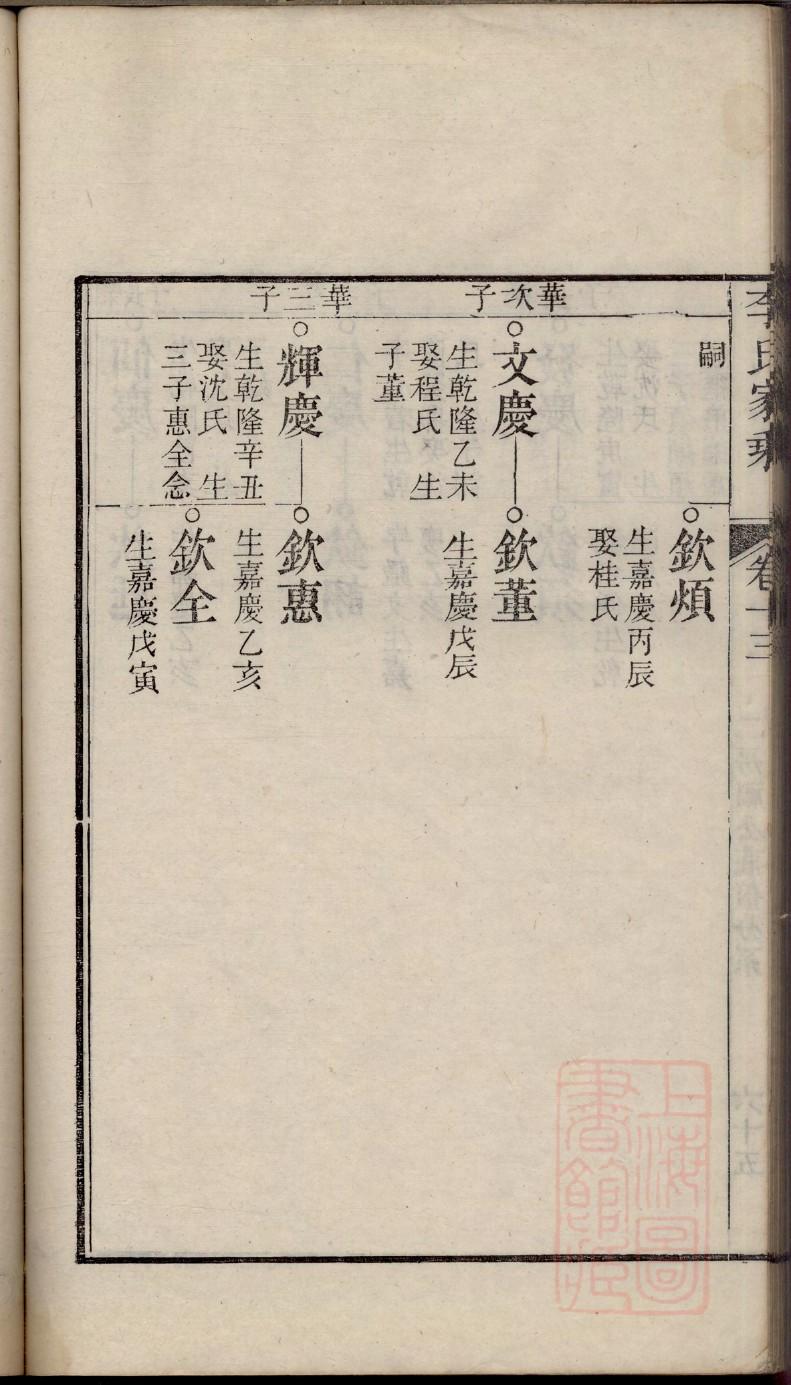 李氏家乘
卷十三
嗣
欽煩
生嘉慶丙辰
娶桂氏
華次子
文慶
生乾隆乙未
娶程氏 生
子董
欽董
生嘉慶戊辰
華三子
輝慶
生乾隆辛丑
娶沈氏 生
三子惠全念
欽惠
生嘉慶乙亥
欽全
生嘉慶戊寅
上海圖
書館藏